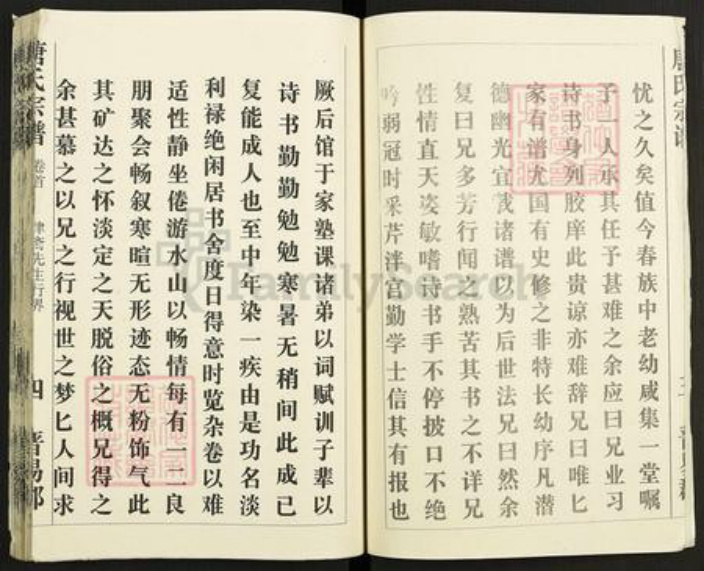 忧之久矣值今春族中老幼咸集一堂嘱
予一人承其任予甚难之余应曰兄业习
诗书身列胶庠此贵谅亦难辞兄曰唯匕
家有谱尤国有史修之非特长幼序凡潜
德幽光宜载诸谱以为后世法兄曰然余
复曰兄多芳行闻之熟苦其书之不详兄
性情直天姿敏嗜诗书手不停披口不绝
吟弱冠时采芹泮宫勤学士信其有报也
唐氏宗谱 卷首 先生行 四 晋昜郡
厥后馆于家塾课诸弟以词赋训子辈以
诗书勤勤勉勉寒暑无稍间此成已
复能成人也至中年染一疾由是功名淡
利禄绝闲居书舍度日得意时览杂卷以难
适性静坐倦游水山以畅情每有一二良
朋聚会畅叙寒暄无形迹态无粉饰气此
其矿达之怀淡定之天脱俗之概兄得之
余甚慕之以兄之行视世之梦匕人间求
FamilySearch